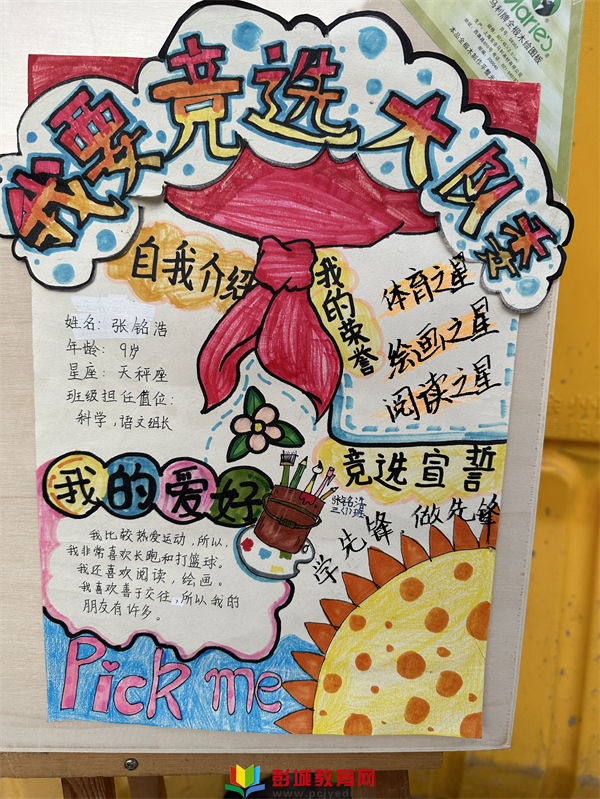 我要竞选大队委
自我介绍
姓名：张铭浩
年龄：9岁
星座：天秤座
班级担任值位：
科学，语文组长
我的荣誉
体育之星
绘画之星
阅读之星
我的爱好
我比较热爱运动，所以，
我非常喜欢长跑和打篮球。
我还喜欢阅读，绘画。
我喜欢善于交往，所以我的
朋友有许多。
竞选宣誓
张铭浩
三(1)班
学先锋 做先锋
Pick me
Maries
马利牌全椴木绘图板
彭城教育网